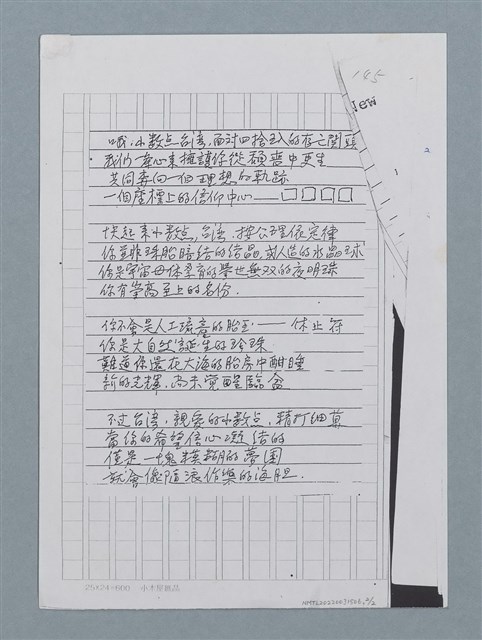 145
New
哦，小數点台湾，面对四捨五入的存亡関頭
我們本心来擁護你從頹喪中更生
共同奔向一個理想的軌跡
一個座標上的信仰中心——□□□□
快起来小數点，台湾，按公理依定律
你並非珠胎暗結的結晶，或人造的水晶球
你是宇宙母体孕育的舉世無双的夜明珠
你有崇高至上的名份．
你不會是人工琉產的胎至——休止符
你是大自然誕生的珍珠
難道你還在大海的胎房中酣睡
新的光輝，尚未覚醒臨盆
不过台湾，親愛的小數点，精打细算
當你的希望信心凝结的
僅是一塊模糊的夢園
就會像隨浪作樂的海胆．
25×24=600 小木屋創品